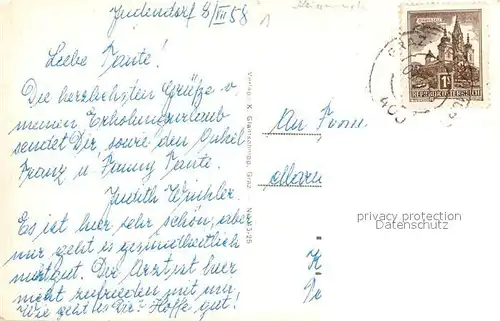 Judendorf 8/VII 58
Liebe Tante!
Die herzlichsten Grüße v.
meinen Erholungsurlaub
sendet Dir sowie den Onkel
Franz u! Fanny Tante.
Judith Winkler.
Es ist hier sehr schön, aber
mir geht es gesundheitlich
nicht gut. Der Arzt ist hier
nicht zufrieden mit mir
Wie geht es Dir? Hoffe, gut!
Verlag K. Graz
1
An Frau
Maru
K
REPUBLIK ÖSTERREICH
MARIAZELL
400
privacy protection
Datenschutz